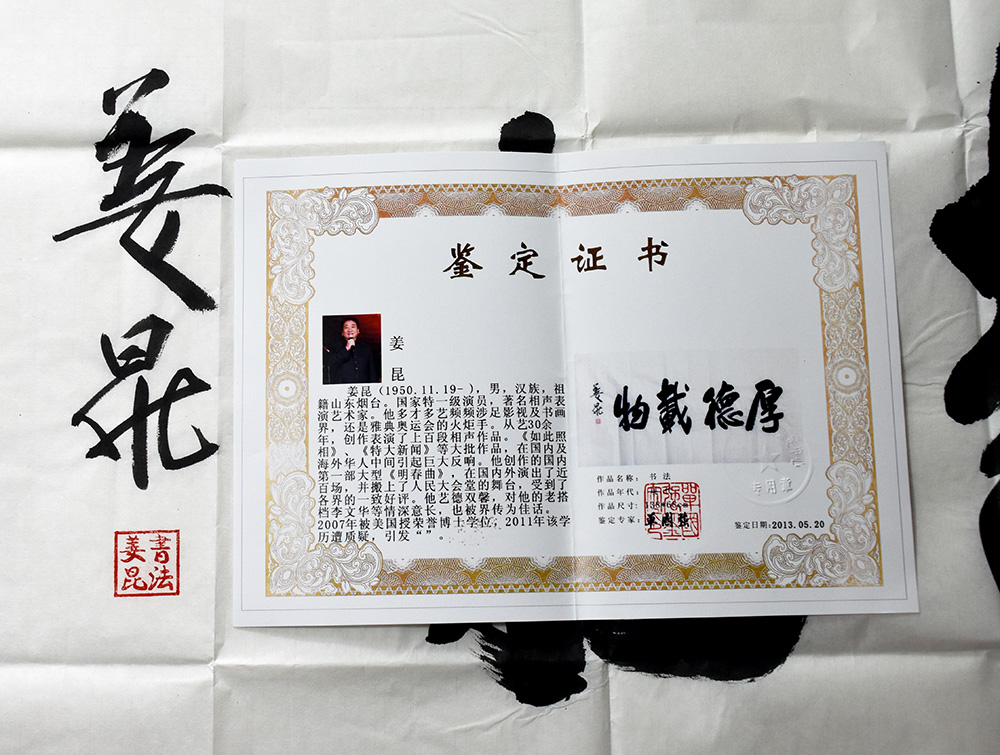 姜昆
書法
姜昆
鉴定证书
姜
昆
姜昆(1950.11.19- ),男,汉族,祖
籍山东烟台。国家特一级演员,著名相声表
演艺术家。他多才多艺频频涉足影视及书画
界,还是雅典奥运会的火炬手。从艺30余
年,创作表演了上百段相声作品。《如此照
相》、《特大新闻》等大批作品,在国内及
海外华人中间引起巨大反响。他创作的国内
第一部大型《明春曲》,在国内外演出了近
百场,并搬上了人民大会堂的舞台,受到了
各界的一致好评。他艺德双馨,对他的老搭
档李文华等情深意长,也被界传为佳话。
2007年被美国授荣誉博士学位,2011年该学
历遭质疑,引发“”。
物載德厚
姜昆
专用章
作品名称: 书法
作品年代:
作品尺寸:
鉴定专家:
鉴定日期:2013.05.20